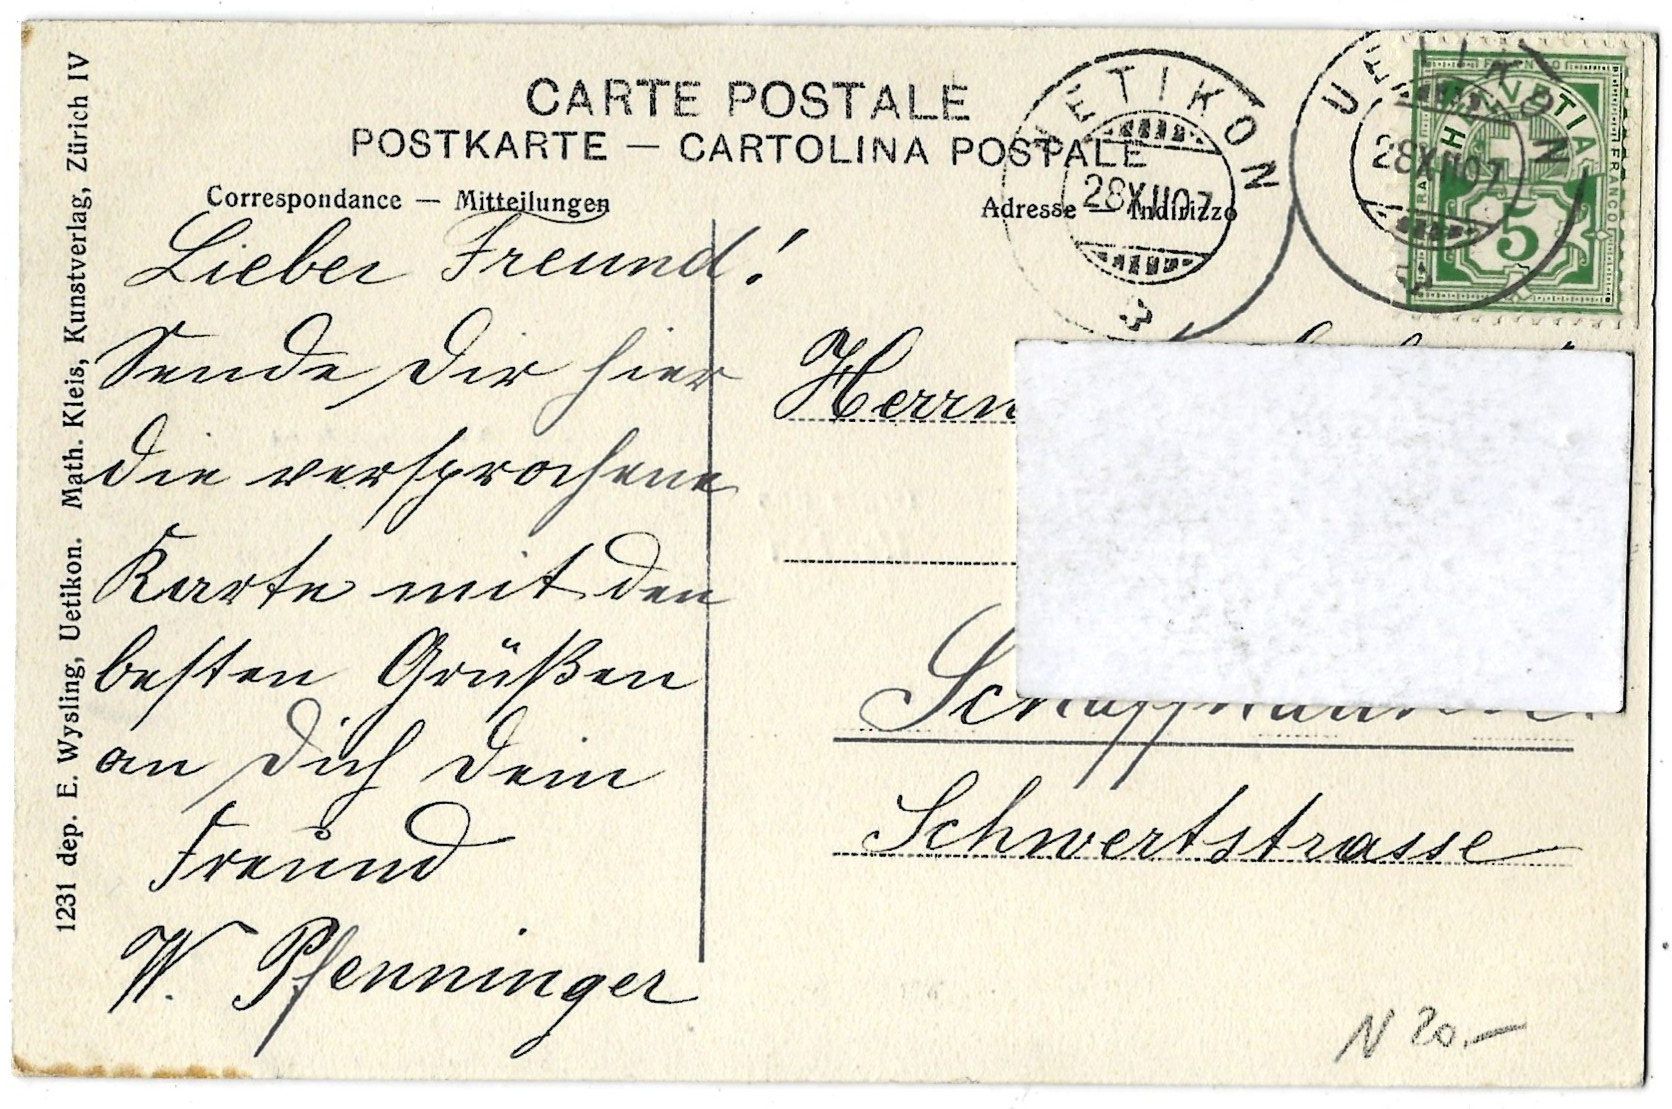 CARTE POSTALE
POSTKARTE — CARTOLINA POSTALE
Correspondance — Mitteilungen
Adresse — Indirizzo
UETIKON
28 XII 07
UETIKON
28 XII 07
HELVETIA
FRANCO
5
Lieber Freund!
Sende Dir hier
die versprochene
Karte mit den
besten Grüßen
an Dich Dein
Freund
W. Pfenninger
Herrn
Schaffhausen
Schwertstrasse
N 20.—
1231 dep. E. Wysling, Uetikon. Math. Kleis, Kunstverlag, Zürich IV